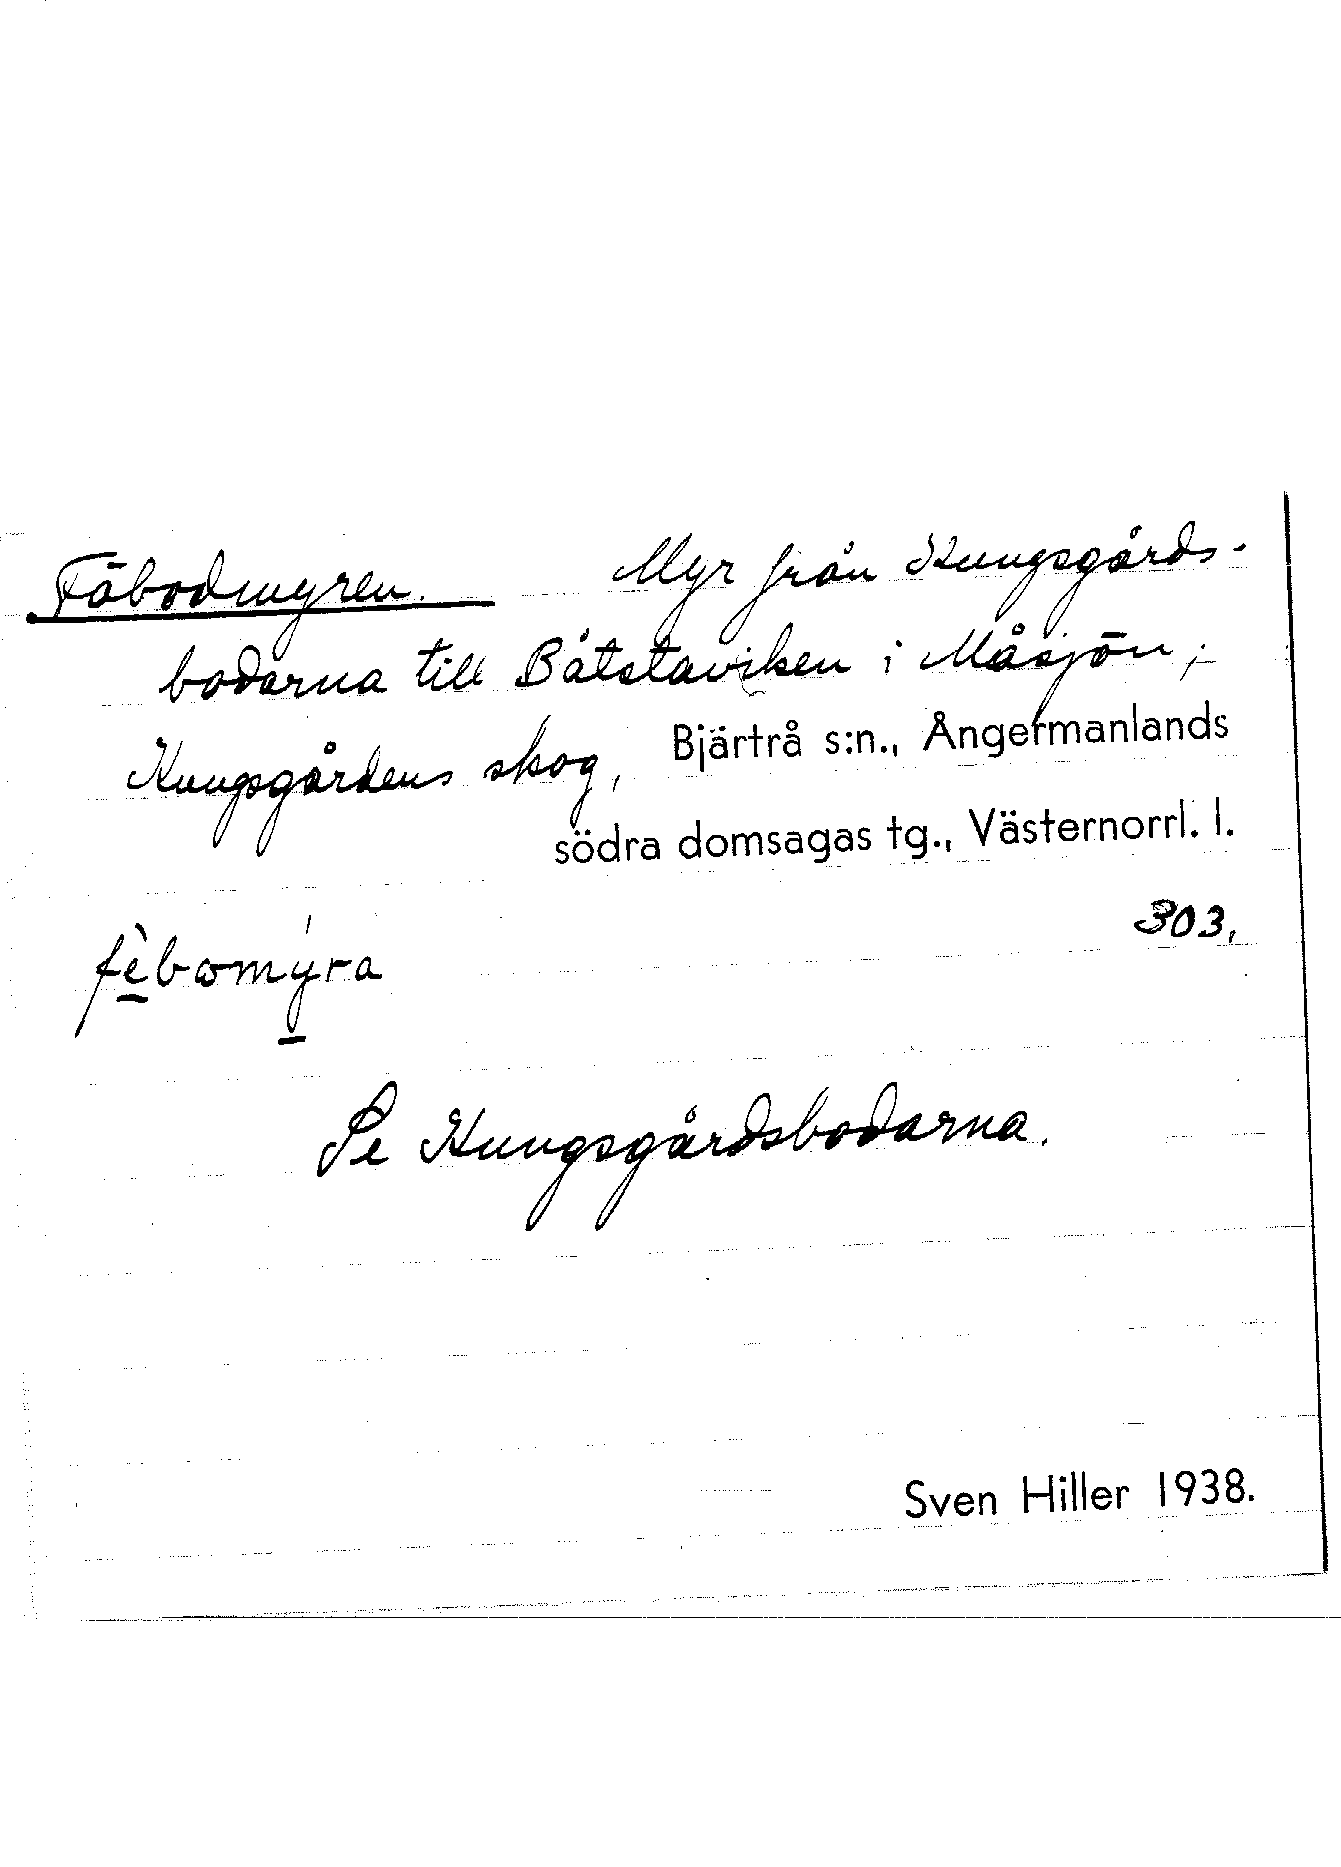 Fäbodmyren. Myr från Kungsgårds-
bodarna till Båtstaviken i Måsjön,
Kungsgårdens skog, Bjärtrå s:n., Ångermanlands
södra domsagas tg., Västernorrl. l.
303,
fèbωmýra
Se Kungsgårdsbodarna.
Sven Hiller 1938.